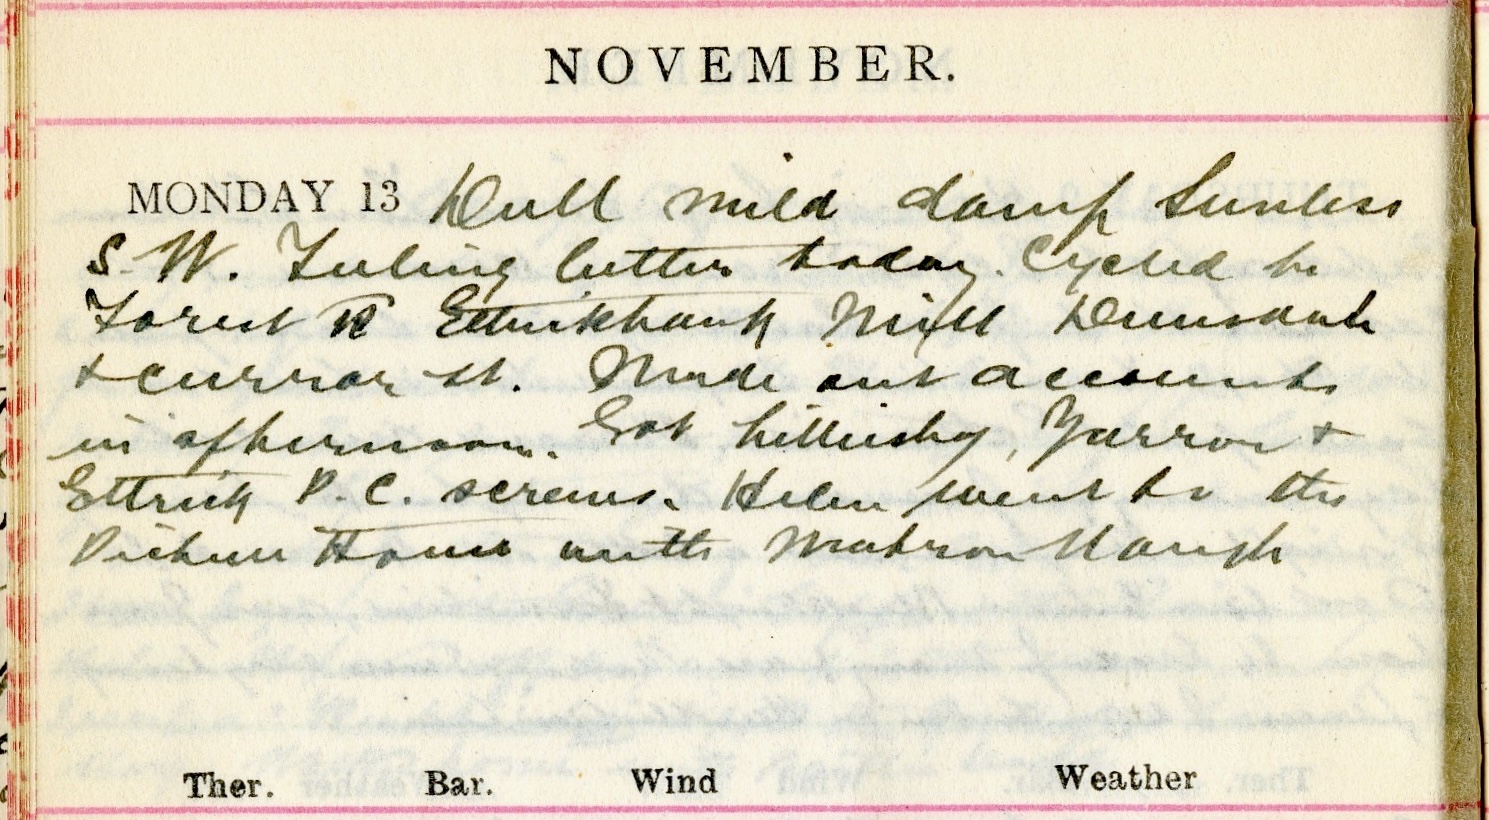 NOVEMBER.
MONDAY 13 Dull mild damp Sunless
S.W. Feeling better today. Cycled to
Forest Ettrickbank Mill Dunsdale
& Curror St. Made out accounts
in afternoon. Got Lilliesleaf, Yarrow &
Ettrick P.C. screws. Helen went to the
Picture House with Matron Waugh
Ther. Bar. Wind Weather